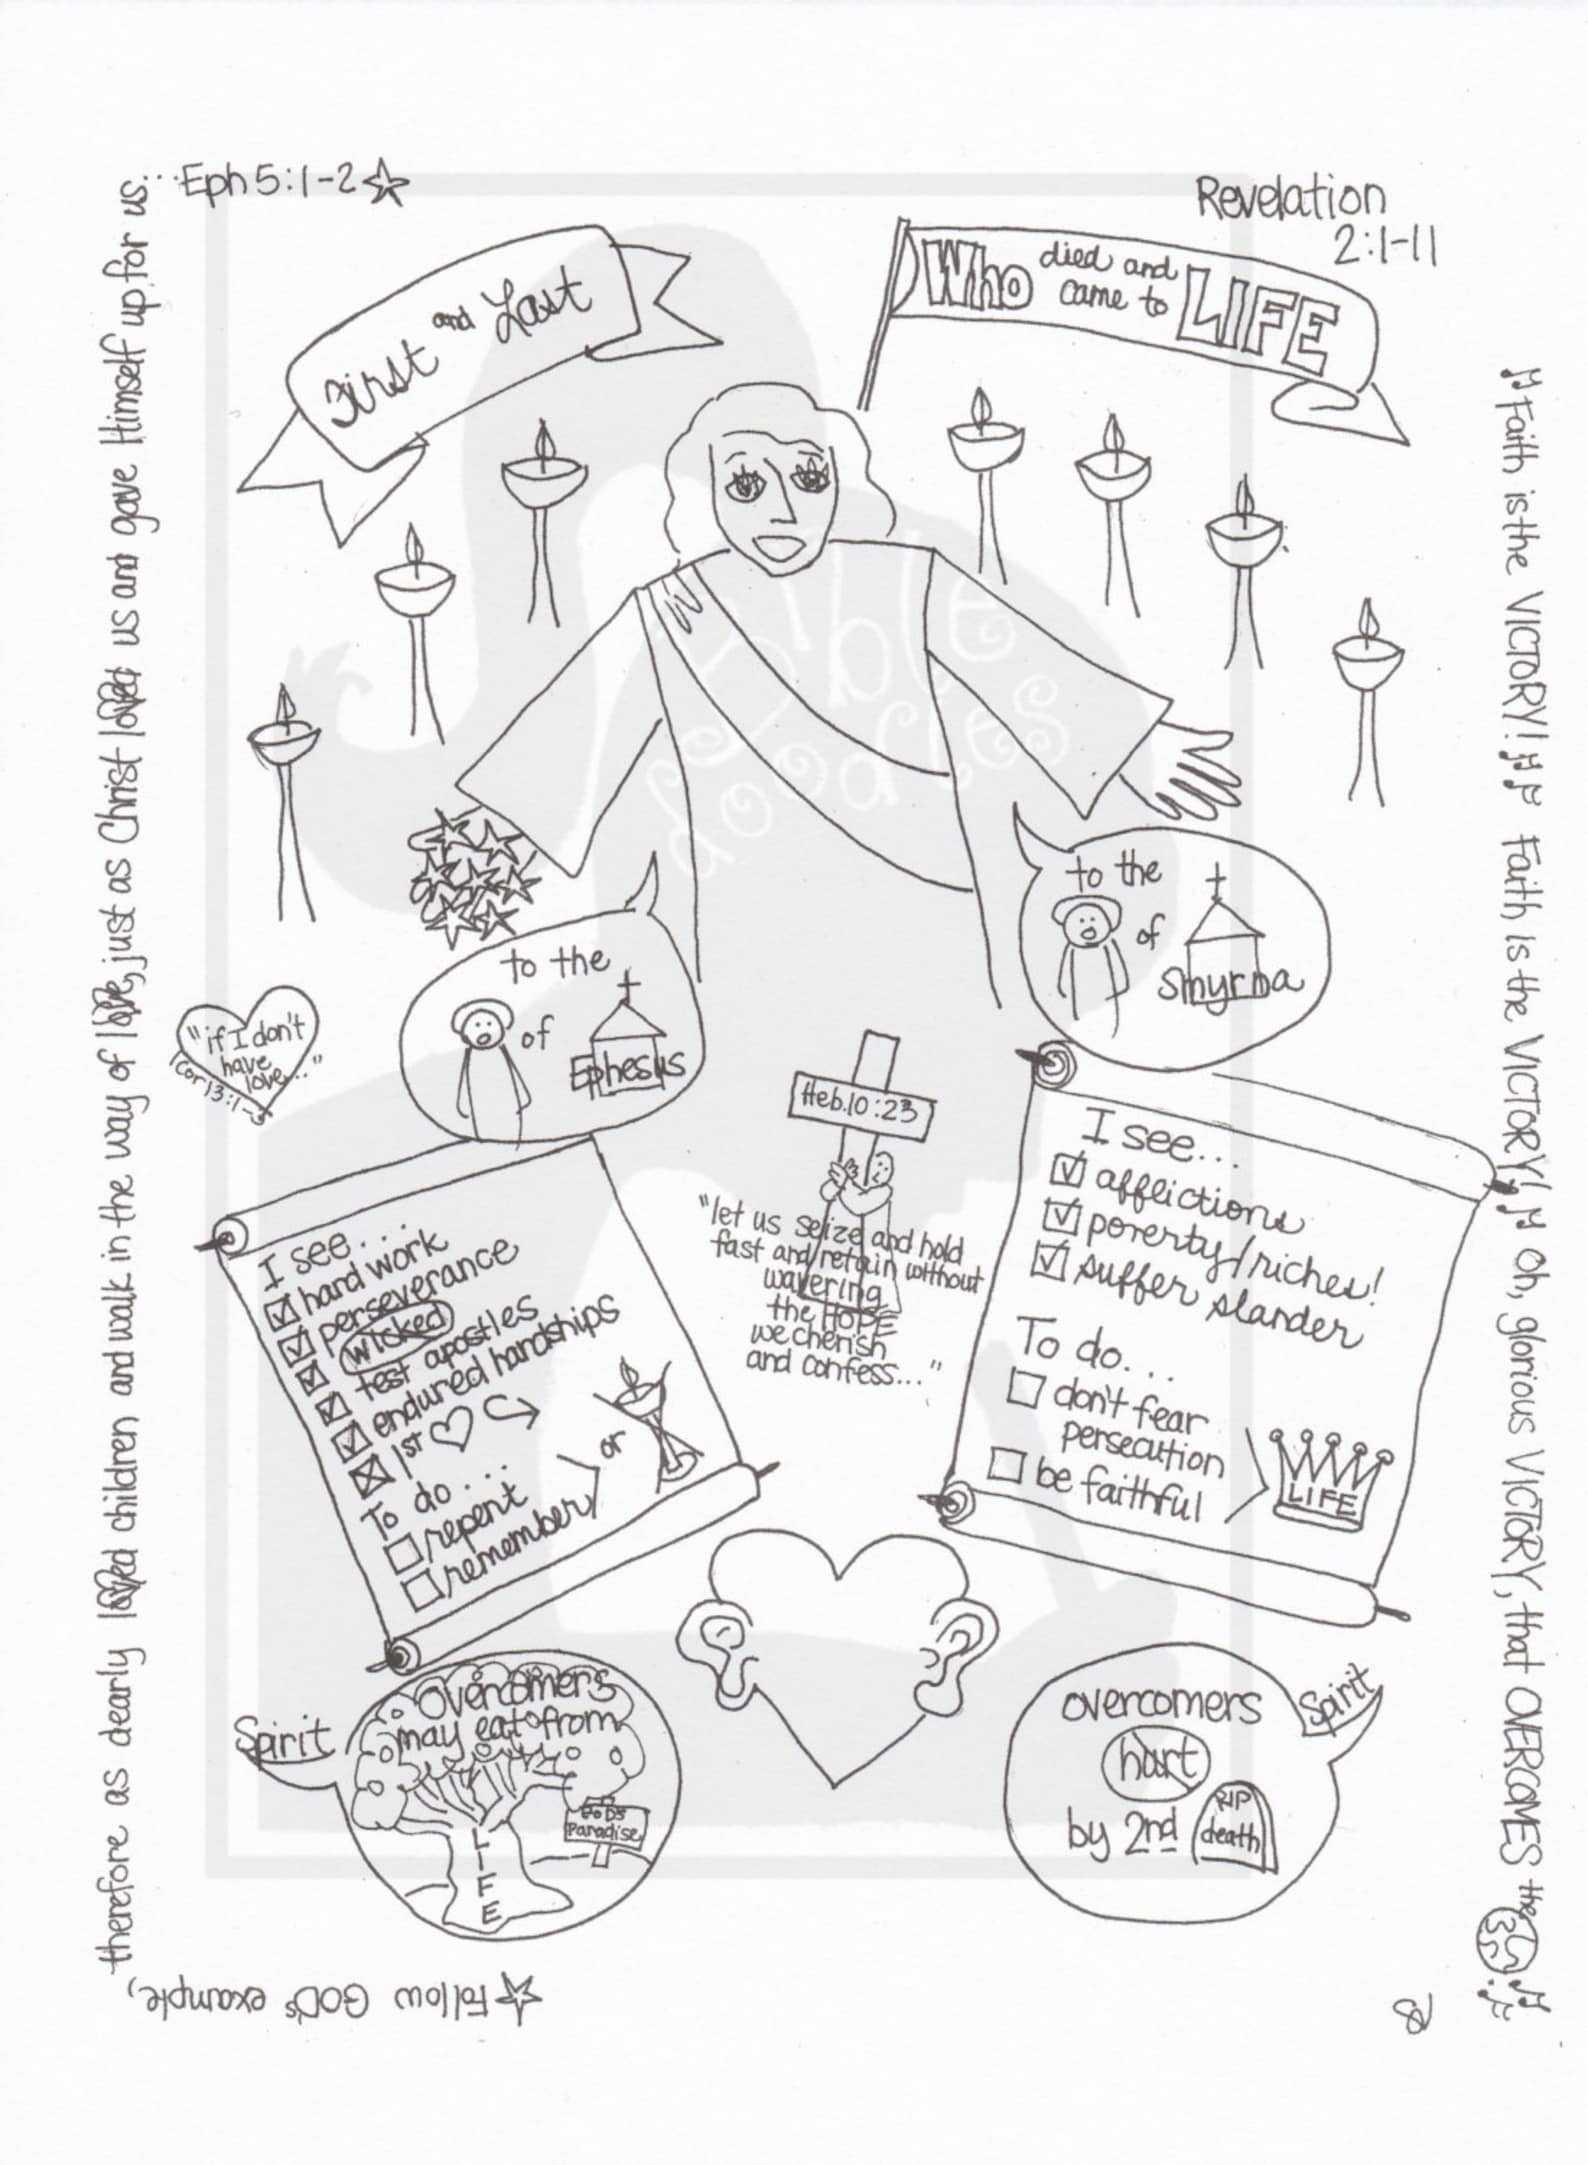 Eph 5:1-2
Revelation
2:1-11
First and Last
Who died and
came to LIFE
Bible
doodles
to the
of
Smyrna
to the
of
Ephesus
"if I don't
have
love..."
1 Cor 13:1-3
Heb. 10:23
"let us seize and hold
fast and retain without
wavering
the HOPE
we cherish
and confess..."
I see...
hard work
perseverance
wicked
test apostles
endured hardships
1st
To do...
repent
remember
or
I see...
afflictions
poverty/riches!
suffer slander
To do...
don't fear
persecution
be faithful
LIFE
Spirit
overcomers
may eat from
LIFE
GOD's
Paradise
Spirit
overcomers
hurt
by 2nd
RIP
death
Follow GOD's example,
therefore as dearly loved children and walk in the way of love, just as Christ loved us and gave Himself up for us...
Faith is the VICTORY! Faith is the VICTORY! Oh, glorious VICTORY, that OVERCOMES the